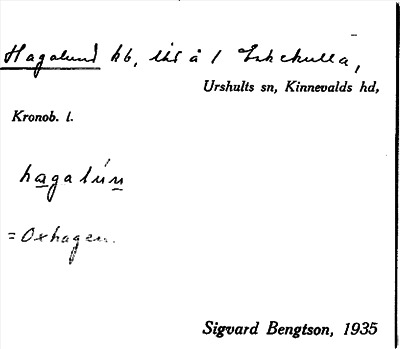 Hagalund hb, lhs å 1 Eskekulla,
Urshults sn, Kinnevalds hd,
Kronob. l.
hagalún
= Oxhagen.
Sigvard Bengtson, 1935